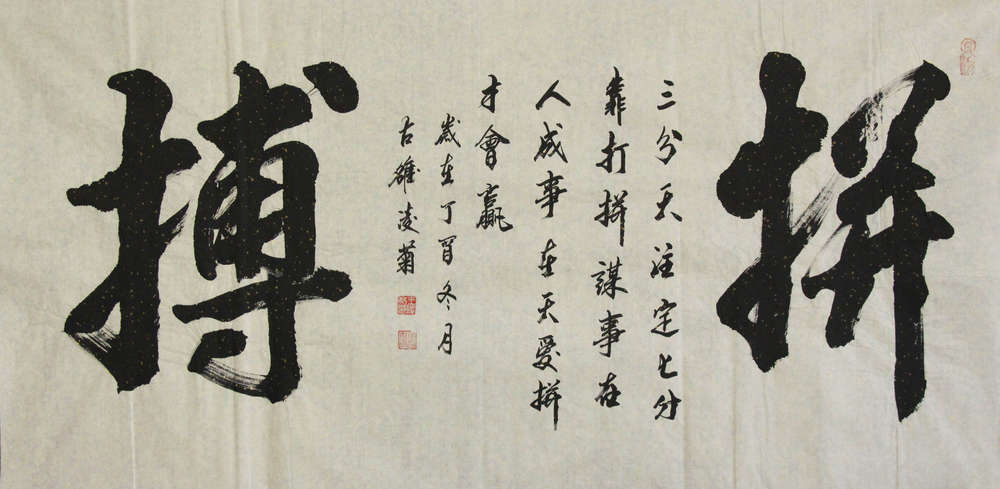 拼
三分天注定七分
靠打拼謀事在
人成事在天愛拼
才會贏
歲在丁酉冬月
古雒凌菊
搏